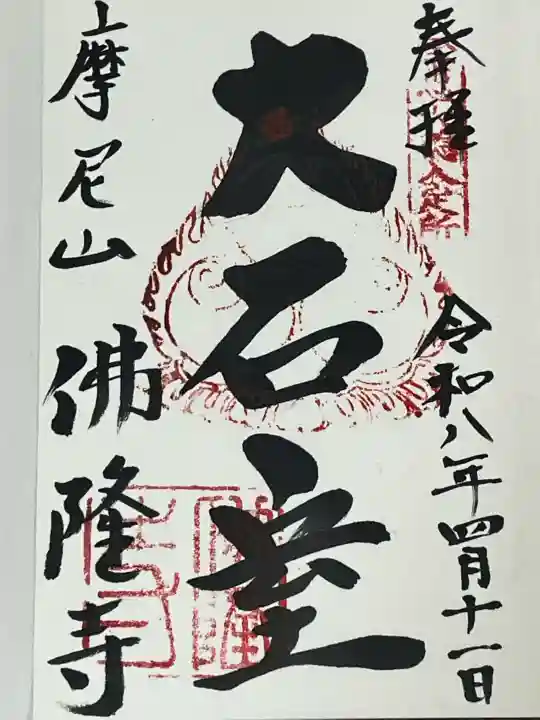 奉拝
令和八年四月十一日
大石室
上摩尼山
佛隆寺